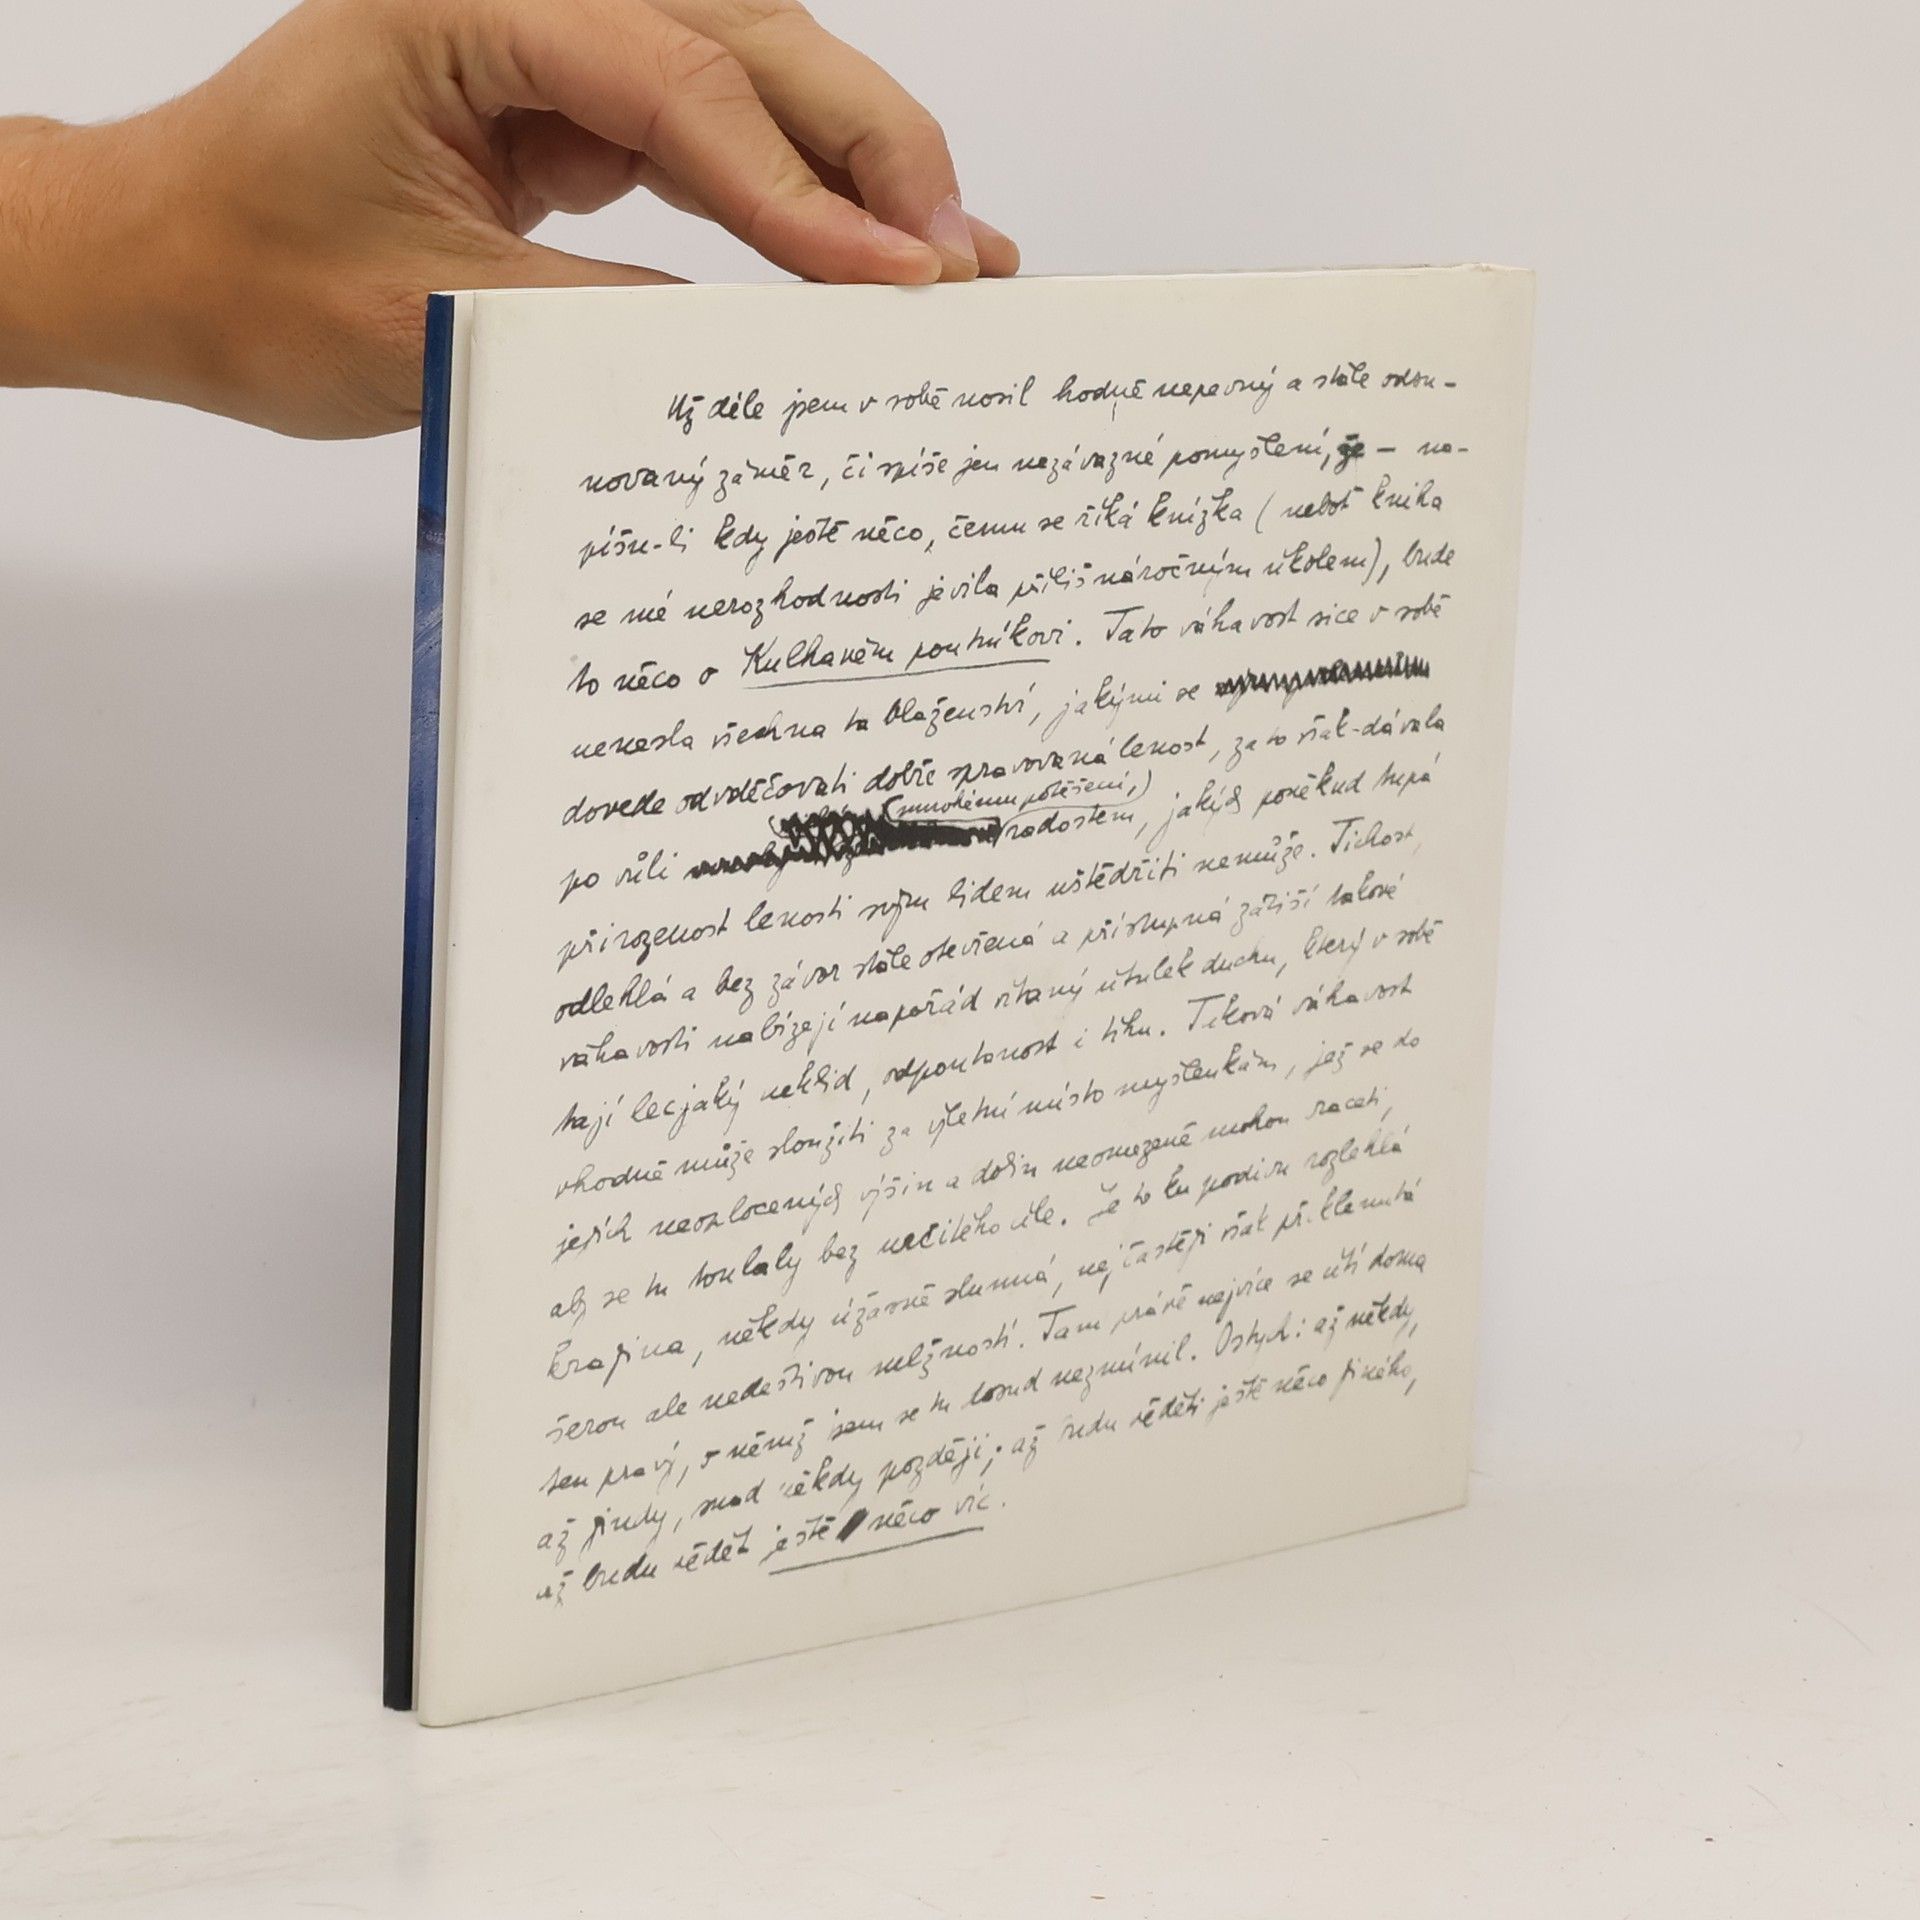 Už déle jsem v sobě nosil hodně nepevný a stále odsu-
novaný záměr, či spíše jen nezávazné pomyšlení, že – na-
píšu-li kdy ještě něco, čemu se říká knížka (neboť kniha
se mé nerozhodnosti jevila příliš náročným úkolem), bude
to něco o Kulhavém poutníkovi. Tato váhavost sice v sobě
nenesla všechna ta blaženství, jakými se
dovede odvděčovati dobře spravovaná lenost, za to však dávala
(mnohému potěšení,)
po vůli radostem, jakých poněkud tupá
přirozenost lenosti svým lidem uštědřiti nemůže. Tichost,
odlehlá a bez závor stále otevřená a přístupná zátiší takové
váhavosti nabízejí napořád vítaný útulek duchu, který v sobě
tají lecjaký neklid, odpoutanost i tíhu. Taková váhavost
vhodně může sloužiti za výletní místo myšlenkám, jež se do
jejích neoplocených výšin a dolin neomezeně mohou raceti,
aby se tu toulaly bez určitého cíle. Je to ku podivu rozlehlá
krajina, někdy úžasně slunná, nejčastěji však přiklenutá
šerou ale nedeštivou mlžností. Tam právě nejvíce se cítí doma
ten pravý, o němž jsem se tu dosud nezmínil. Ostych: až někdy,
až jindy, snad někdy později; až budu věděti ještě něco jiného,
až budu vědět ještě něco víc.